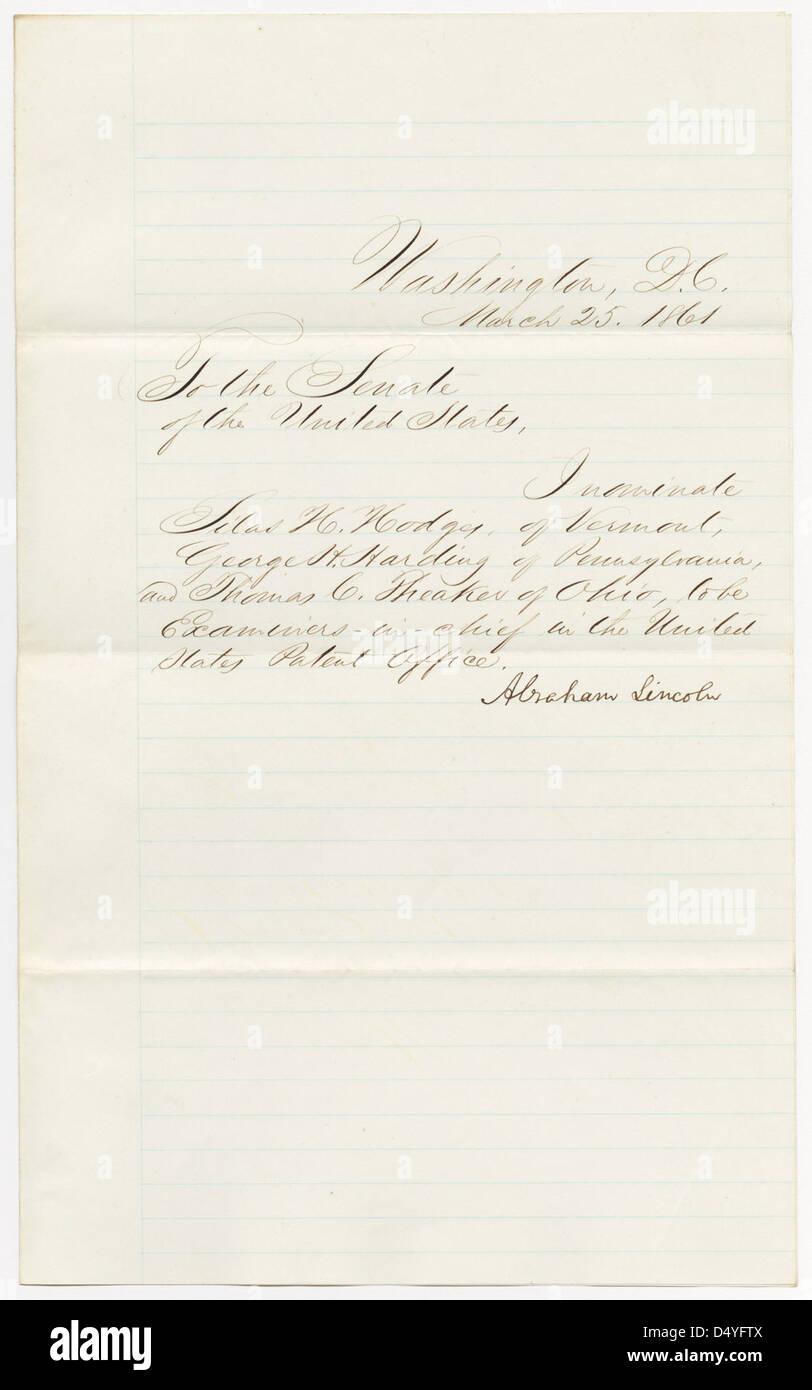 Washington, D.C.
March 25. 1861
To the Senate
of the United States,
I nominate
Silas H. Hodges, of Vermont,
George H. Harding of Pennsylvania,
and Thomas C. Theaker of Ohio, to be
Examiners-in-chief in the United
States Patent Office.
Abraham Lincoln
a
alamy
a alamy
Image ID: D4YFTX
www.alamy.com